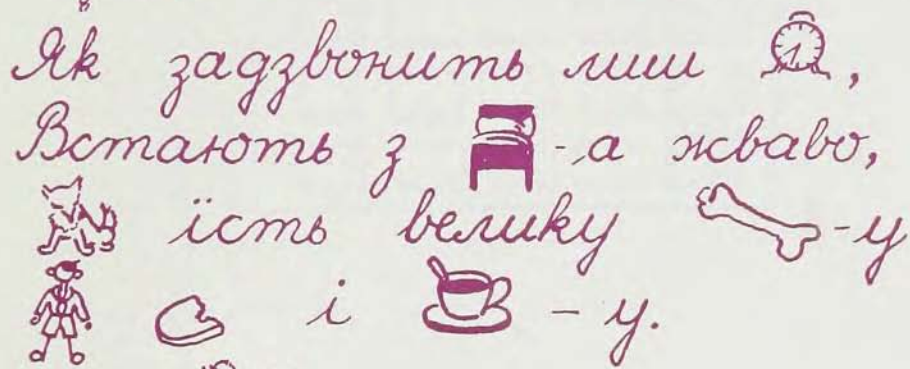 Як задзвонить лиш ,
Встають з -а жваво,
їсть велику -у
і -у.